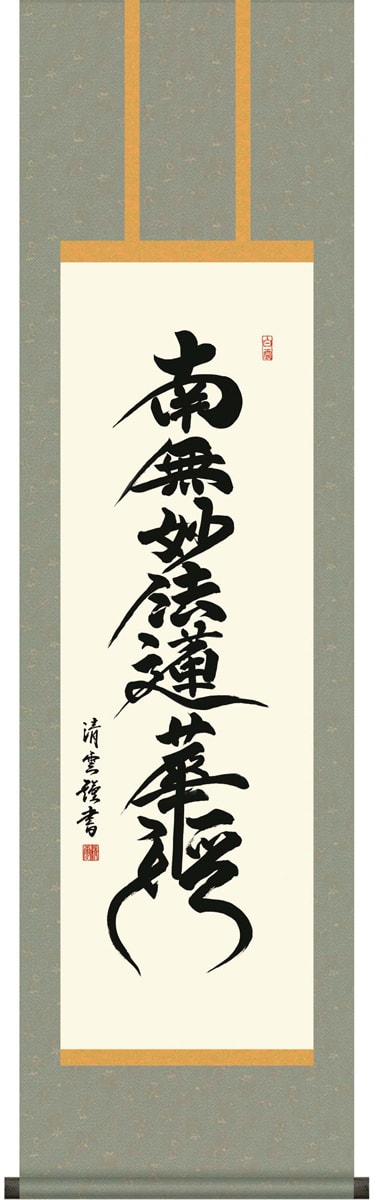 南無妙法蓮華経
清雲強書